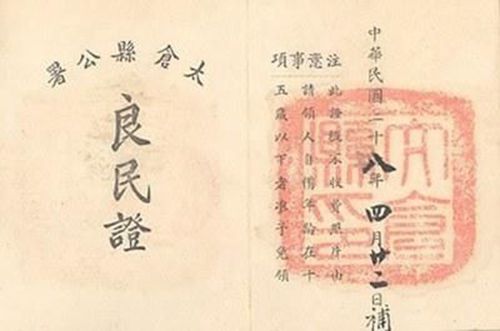 中華民國二十八年四月廿二日補
注意事項
此證概不收費照片由
請領人自備年齡在十
五歲以下者准予免領
太倉縣公署
良民證
太倉
縣印